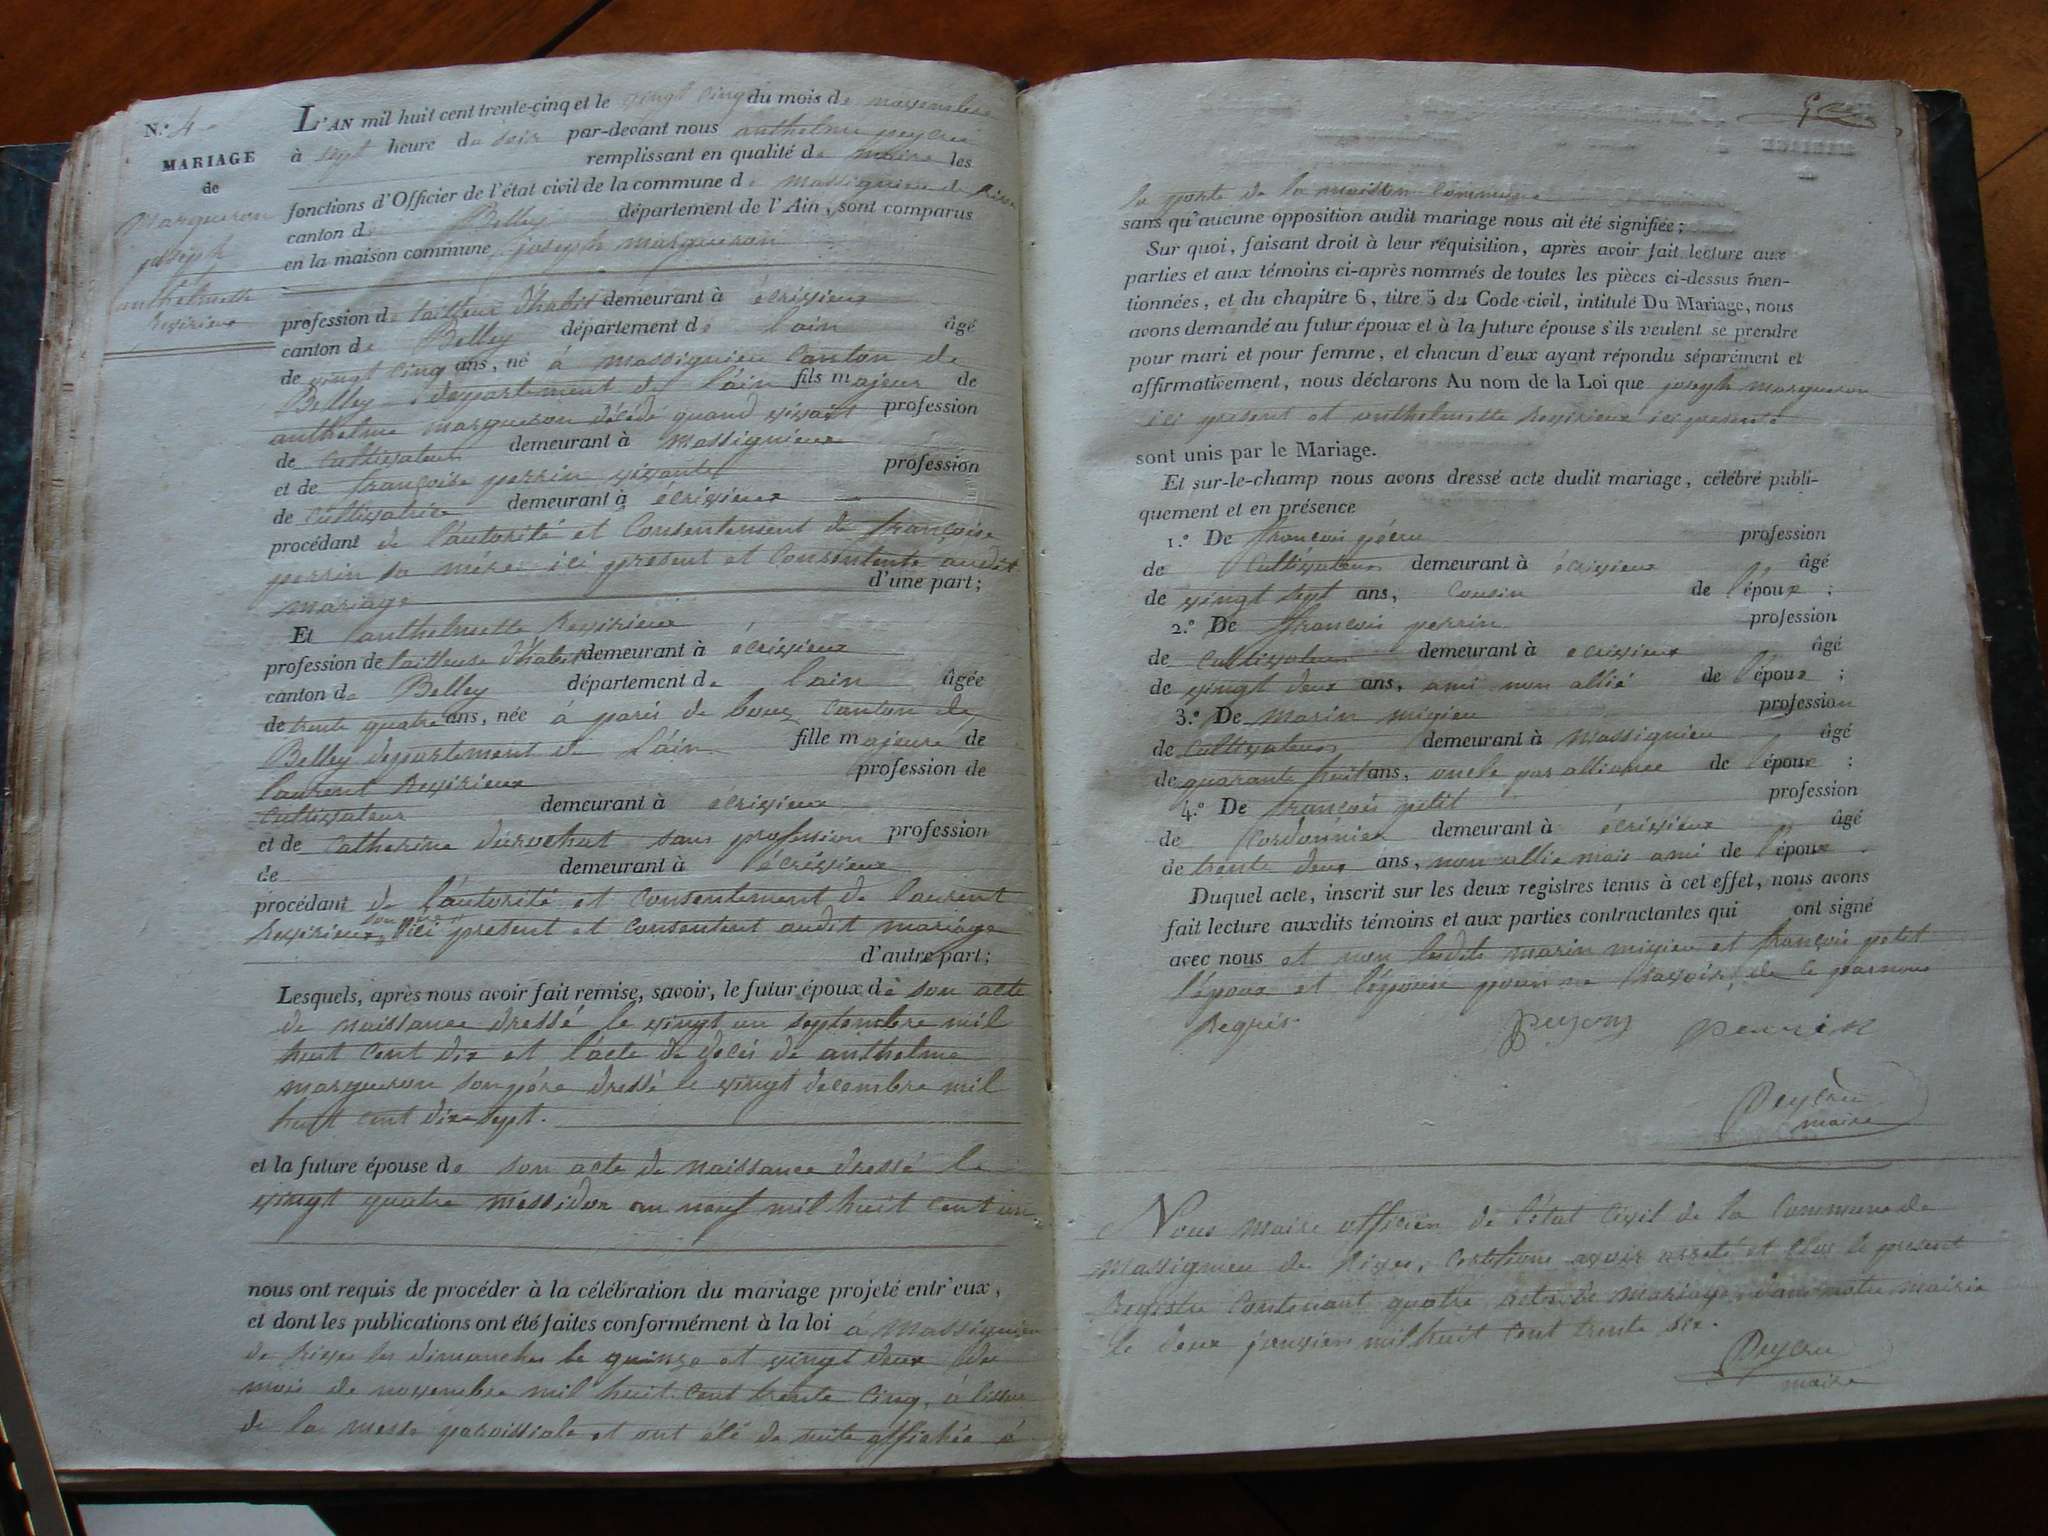 N.º 4
MARIAGE
de
Marqueron
joseph
anthelmette
Revirieux
L'AN mil huit cent trente-cinq et le vingt cinq du mois de novembre
à sept heure du soir par-devant nous anthelme peycru
remplissant en qualité de maire les
fonctions d'Officier de l'état civil de la commune de massignieu de rives
canton de Belley département de l'Ain, sont comparus
en la maison commune joseph marqueron
profession de tailleur d'habit demeurant à écrivieux
canton de Belley département de lain âgé
de vingt cinq ans, né à massignieu canton de
Belley département de l'ain fils majeur de
anthelme marqueron décédé quand vivait profession
de cultivateur demeurant à massignieux
et de françoise perrin vivante profession
de cultivatrice demeurant à écrivieux
procédant de l'autorité et consentement de françoise
perrin sa mére ici present et consentente audit
mariage d'une part;
Et anthelmette Revirieux
profession de tailleuse d'habit demeurant à écrivieux
canton de Belley département de lain âgée
de trente quatre ans, née à paris de bouz canton de
Belley département de l'ain fille majeure de
laurent Revirieux profession de
cultivateur demeurant à écrivieux
et de catherine durochat sans profession profession
de demeurant à écrévieux
procédant de l'autorité et consentement de laurent
Revirieux son père ici present et consentent audit mariage
d'autre part;
Lesquels, après nous avoir fait remise, savoir, le futur époux de son acte
de naissance dressé le vingt un septembre mil
huit cent dix et l'acte de décés de anthelme
marqueron son père dressé le vingt decembre mil
huit cent dix-sept.
et la future épouse de son acte de naissance dressé le
vingt quatre messidor an neuf mil huit cent un
nous ont requis de procéder à la célébration du mariage projeté entr'eux,
et dont les publications ont été faites conformément à la loi à massignieu
de rives les dimanches le quinze et vingt deux du
mois de novembre mil huit cent trente cinq, à lissue
de la messe paroissiale et ont été de suite affichée à
la porte de la maison commune
sans qu'aucune opposition audit mariage nous ait été signifiée;
Sur quoi, faisant droit à leur réquisition, après avoir fait lecture aux
parties et aux témoins ci-après nommés de toutes les pièces ci-dessus men-
tionnées, et du chapitre 6, titre 5 du Code civil, intitulé Du Mariage, nous
avons demandé au futur époux et à la future épouse s'ils veulent se prendre
pour mari et pour femme, et chacun d'eux ayant répondu séparément et
affirmativement, nous déclarons Au nom de la Loi que joseph marqueron
ici present et anthelmette Revirieux ici presente
sont unis par le Mariage.
Et sur-le-champ nous avons dressé acte dudit mariage, célébré publi-
quement et en présence
1.º De françois profession
de cultivateur demeurant à écrivieux âgé
de vingt sept ans, cousin de l'époux;
2.º De françois perrin profession
de cultivateur demeurant à écrivieux âgé
de vingt deux ans, ami non allié de l'époux;
3.º De marin mivieu profession
de cultivateur demeurant à massignieu âgé
de quarante huit ans, oncle par alliance de l'époux;
4.º De françois petit profession
de cordonnier demeurant à écrivieux âgé
de trente deux ans, non allié mais ami de l'époux.
Duquel acte, inscrit sur les deux registres tenus à cet effet, nous avons
fait lecture auxdits témoins et aux parties contractantes qui ont signé
avec nous et non lesdits marin mivieu et françois petit
l'époux et l'épouse pour ne savoir, de ce par nous
Requis
perrin
Peycru
maire
Nous maire officier de l'état civil de la commune de
massignieu de Rives, certifions avoir arreté et clos le present
Registre contenant quatre actes de mariage, dans notre mairie
le deux janvier mil huit cent trente six.
Peycru
maire